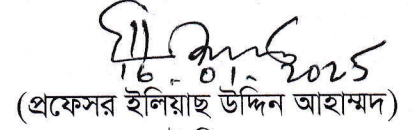 16.01.2025
(প্রফেসর ইলিয়াছ উদ্দিন আহাম্মদ)